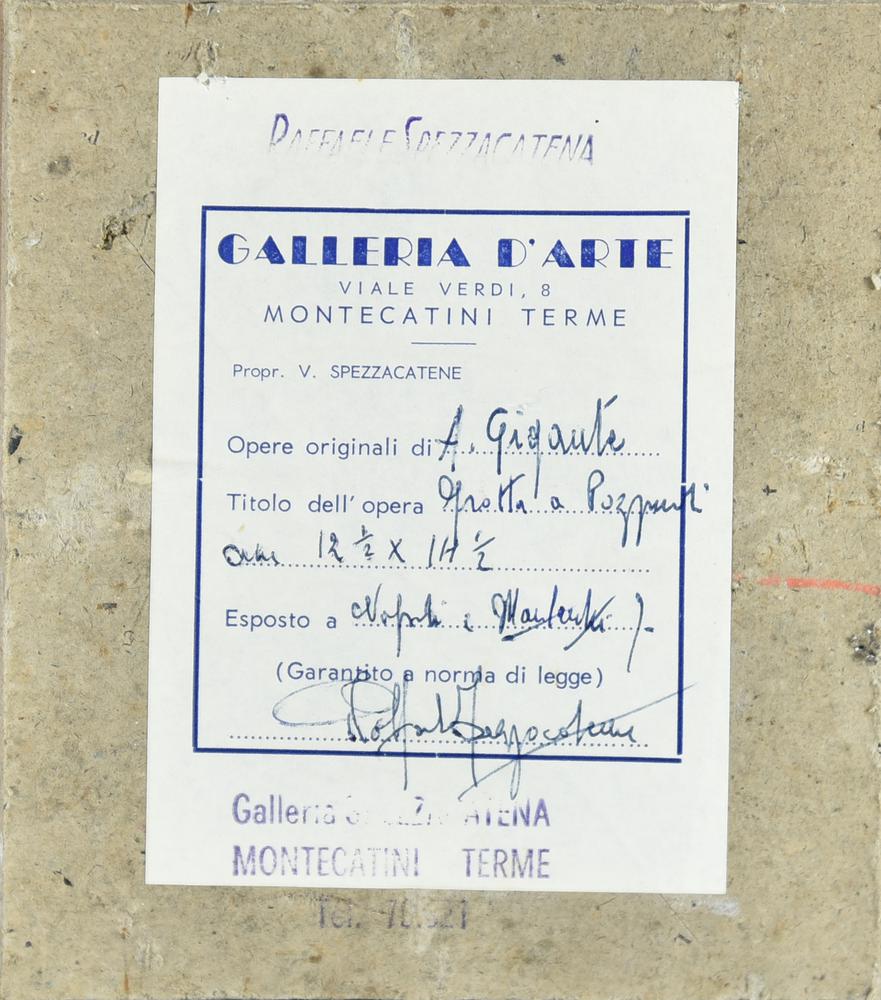 RAFFAELE SPEZZACATENA
GALLERIA D'ARTE
VIALE VERDI, 8
MONTECATINI TERME
Propr. V. SPEZZACATENE
Opere originali di A. Gigante
Titolo dell'opera Grotta a Pozzuoli
12 ½ X 14 ½
Esposto a Napoli e
(Garantito a norma di legge)
Raffaele Spezzacatena
Galleria SPEZZACATENA
MONTECATINI TERME
Tel.